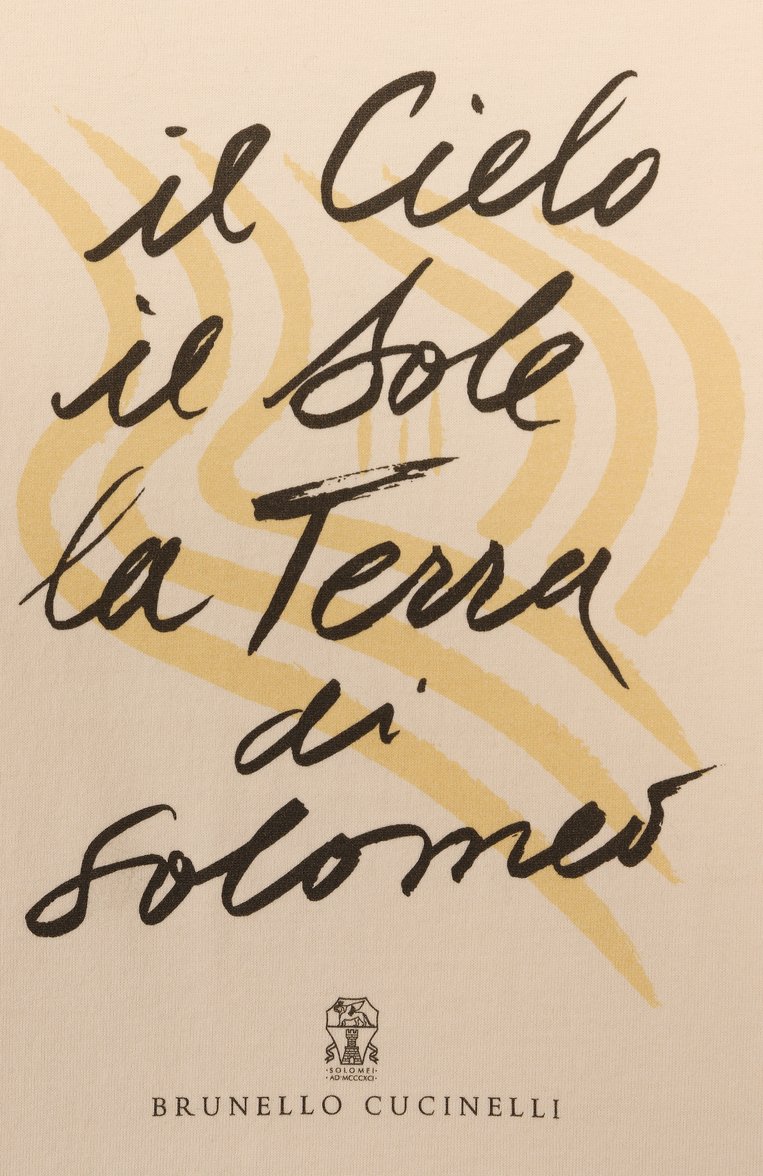 il Cielo
il Sole
la Terra
di
Solomeo
·SOLOMEI·
·AD·MCCCXCI·
BRUNELLO CUCINELLI